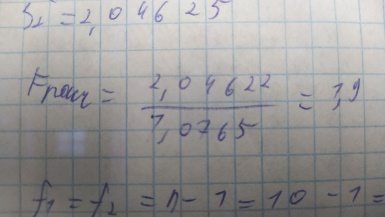 S₂ = 2,04625
Fрасч = 2,04622 / 1,0765 = 1,9
f₁ = f₂ = n - 1 = 10 - 1 =